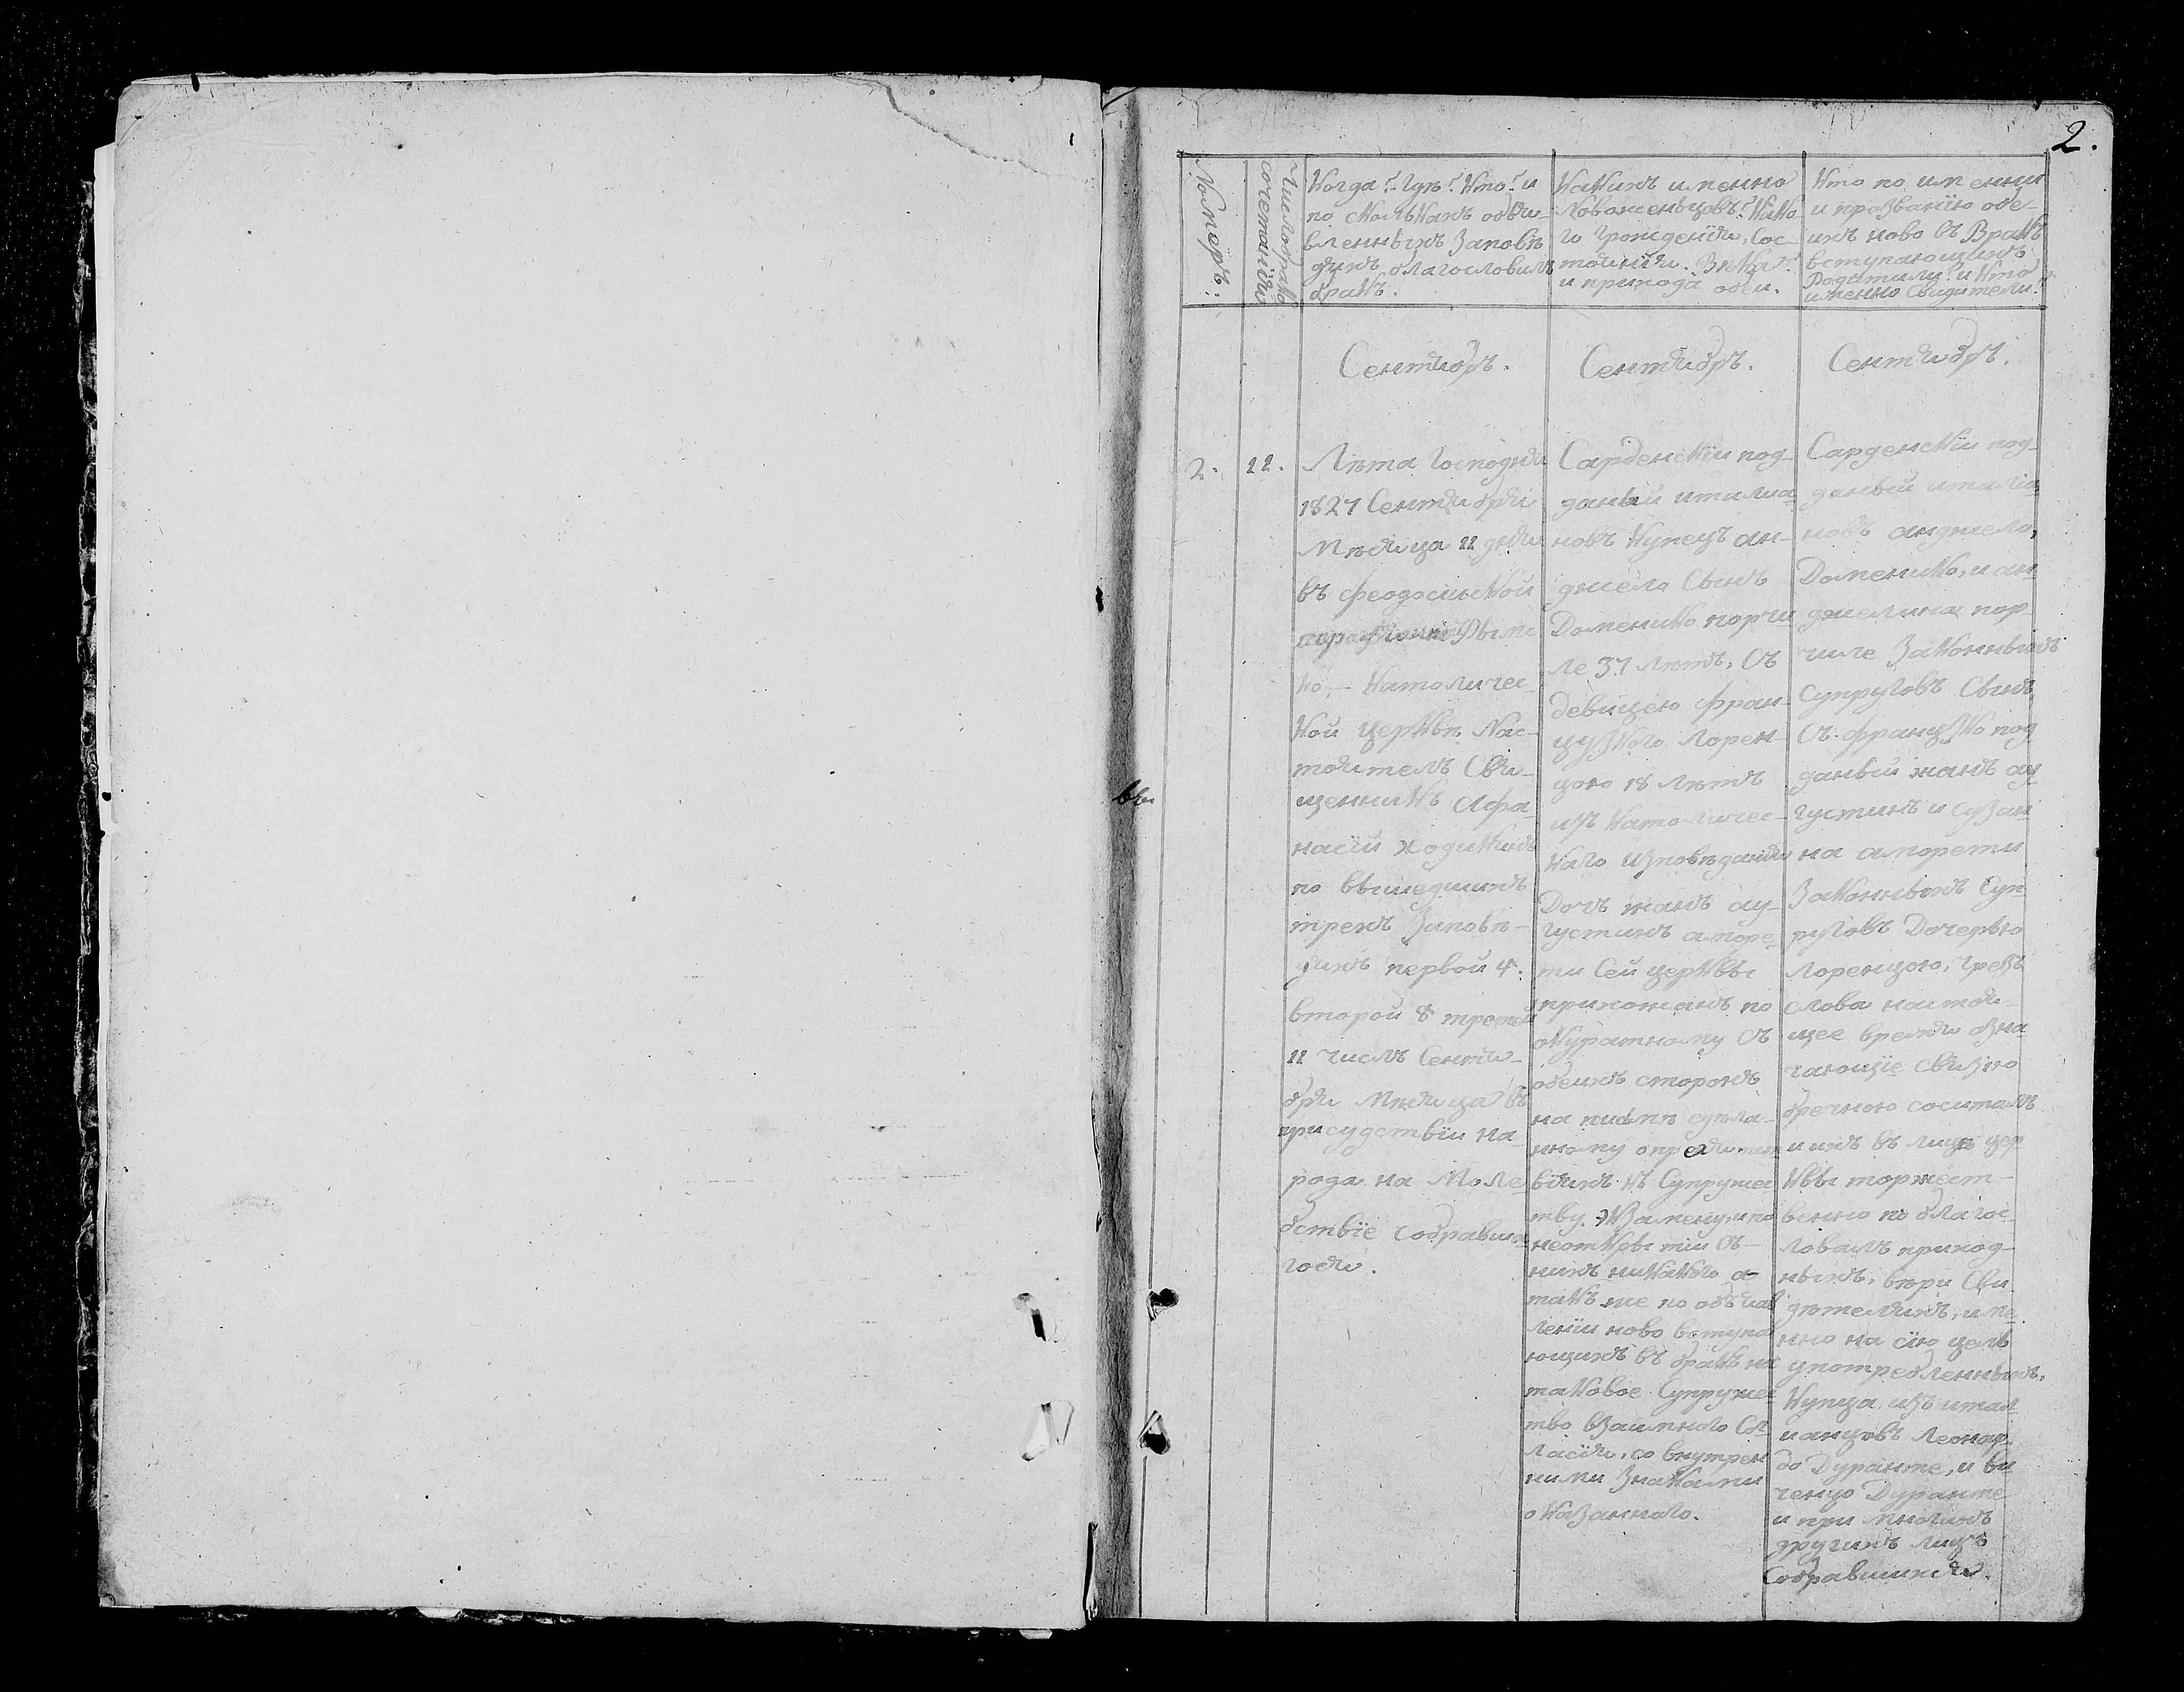 2.
Номеръ.
Число брако
сочетанія
Когда? Гдѣ? Кто? и
по сколькихъ объя-
вленныхъ Заповѣ
дяхъ благословилъ
бракъ.
Какихъ именно
Новоженьцовъ? Како-
го урожденія, Сос-
тоянія. Вѣка?
и прихода оби.
Кто по имени
и прозванію обе-
ихъ ново въ Бракъ
вступающихъ
Родители? и Кто
именно Свидители?
Сентябрь.
Сентябрь.
Сентябрь.
2.
11.
Лѣта Господня
1827 Сентября
Мѣсяца 11 дня
въ феодосійской
Рымс
ко,- Католичес-
кой церквѣ Нас-
тоятель Свя-
щенникъ Афа
насій
по вышедшихъ
трехъ Заповѣ-
дяхъ первой 4.
второй 8 третей
11 числъ Сентя-
бря Мѣсяца въ
присудствіи на-
рода на Моле-
бствіе собравша
гося.
Сарденскій под-
даный италиа
новъ Купецъ ан-
джело Сынъ
Доменико порчи
ле 37 лѣтъ, Съ
девицею фран-
цузкого Лорен-
цою 18 лѣтъ
изъ Католичес-
каго Изповѣданія
Дочъ жанъ ау-
густинъ аморе-
ти Сей церквы
прихожанъ по
окуратному Съ
обеихъ сторонъ
на писмѣ сдѣла-
нному
къ Супружес
тву Экзамену, и по
неоткры тіи Съ-
нихъ никакого а
такъ же по объчав
леніи ново вступа
ющихъ въ бракъ на
таковое Супружес
тво взаимного Сог-
ласія, со внутрен
ними Знаками
оказанного.
Сарденскій под-
даный италіа
новъ анджело,
Доменико, и ан
джелина пор-
чиле Законныхъ
Супруговъ Сынъ
Съ французко под
даный жанъ ау
густинъ и сузан
на аморети
Законныхъ Суп
руговъ Дочерью
Лоренцою, чрезъ
слова настоя-
щее время озна
чающіе связію
бречною соситалъ
и ихъ въ лицѣ цер
квы торжест-
венно по благос-
ловалъ приход-
ныхъ, вѣри Сви
дѣтеляхъ, име
нно на сію цель
употребленныхъ,
Купца, изъ итал
ианцовъ Леонар-
до Дуранте, и ви
ченцо Дуранте
и при многихъ
другихъ лицъ
Собравшихся.